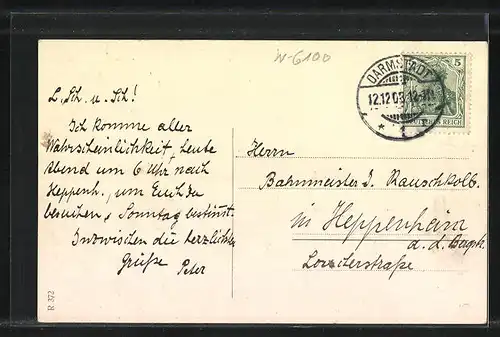 W-6100
DARMSTADT
5
12.12.08.
DEUTSCHES REICH
* 1
L. Sch. u. Sch!
Ich komme aller
Wahrscheinlichkeit, heute
Abend um 6 Uhr nach
Heppenh., um Euch zu
besuchen, Sonntag bestimmt.
Inzwischen die herzlichsten
Grüße Peter
Herrn
Bahnmeister J. Rauschkolb.
in Heppenheim
a. d. Bergstr.
Lorscherstraße
R. 372